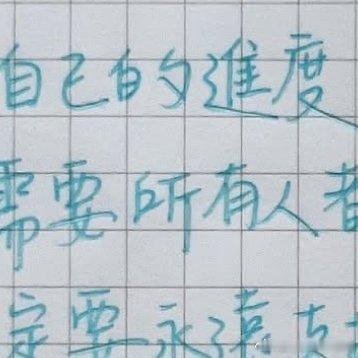 自己的進度
需要所有人者
定要永遠支